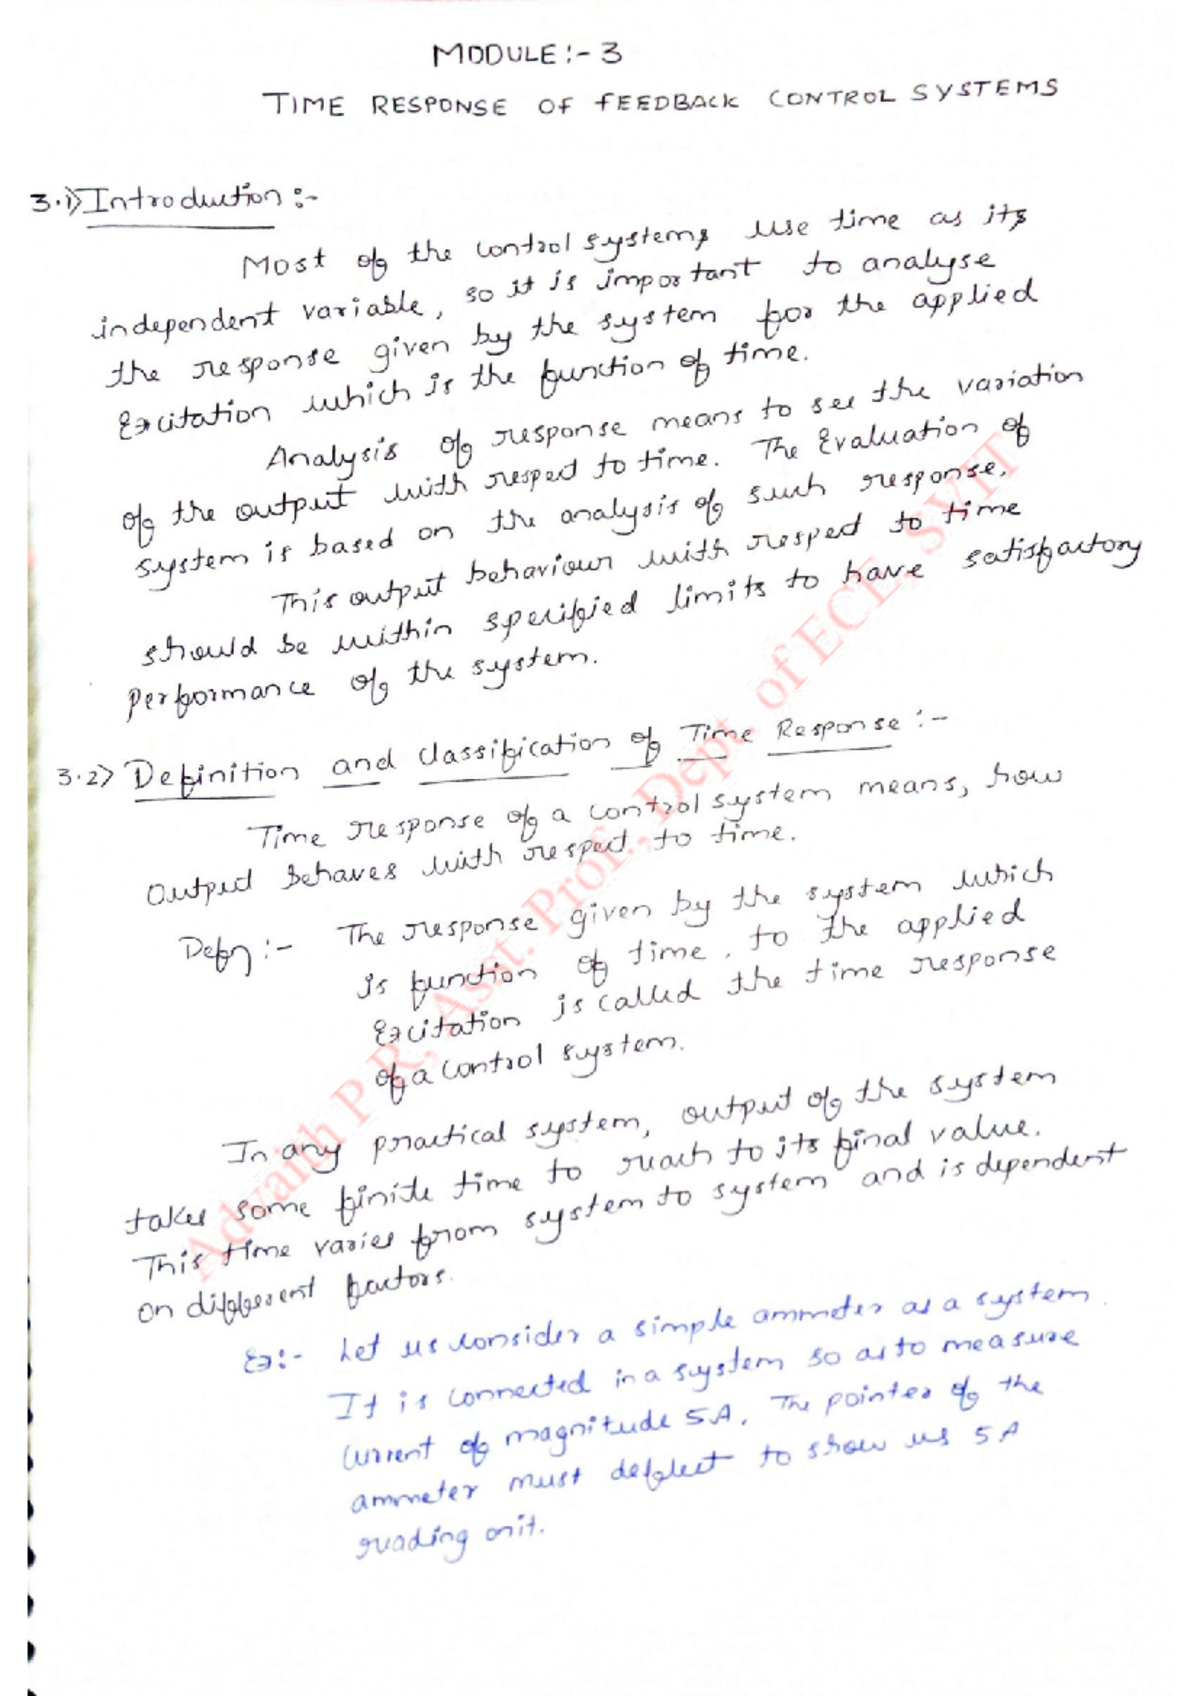 MODULE:- 3
TIME RESPONSE OF FEEDBACK CONTROL SYSTEMS
3.1) Introduction :-
Most of the control systems use time as its
independent variable, so it is important to analyse
the response given by the system for the applied
Excitation which is the function of time.
Analysis of response means to see the variation
of the output with respect to time. The Evaluation of
system is based on the analysis of such response.
This output behaviour with respect to time
should be within specified limits to have satisfactory
performance of the system.
3.2) Definition and Classification of Time Response :-
Time response of a control system means, how
output behaves with respect to time.
Defn :- The response given by the system which
is function of time, to the applied
Excitation is called the time response
of a control system.
In any practical system, output of the system
takes some finite time to reach to its final value.
This time varies from system to system and is dependent
on different factors.
Ex:- Let us consider a simple ammeter as a system.
It is connected in a system so as to measure
current of magnitude 5A. The pointer of the
ammeter must deflect to show us 5A
reading on it.
Advaith P R, Asst. Prof., Dept. of ECE, SVIT